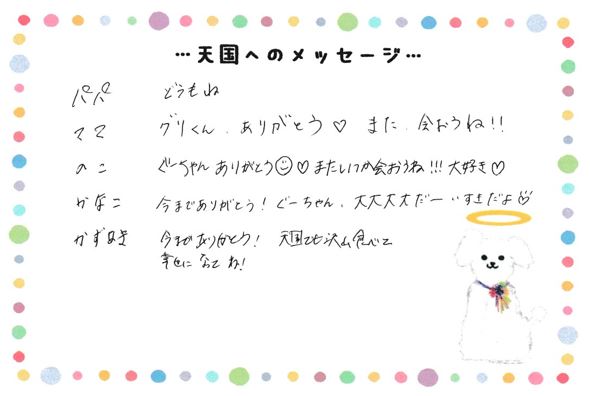 …天国へのメッセージ…
パパ どうもね
ママ グリくん、ありがとう♡ また、会おうね!!
のこ ぐーちゃんありがとう☺♡またいつか会おうね!!!大好き♡
かなこ 今までありがとう!ぐーちゃん、大大大大だーいすきだよ
かずゆき 今までありがとう! 天国でも沢山食べて
幸せになってね!